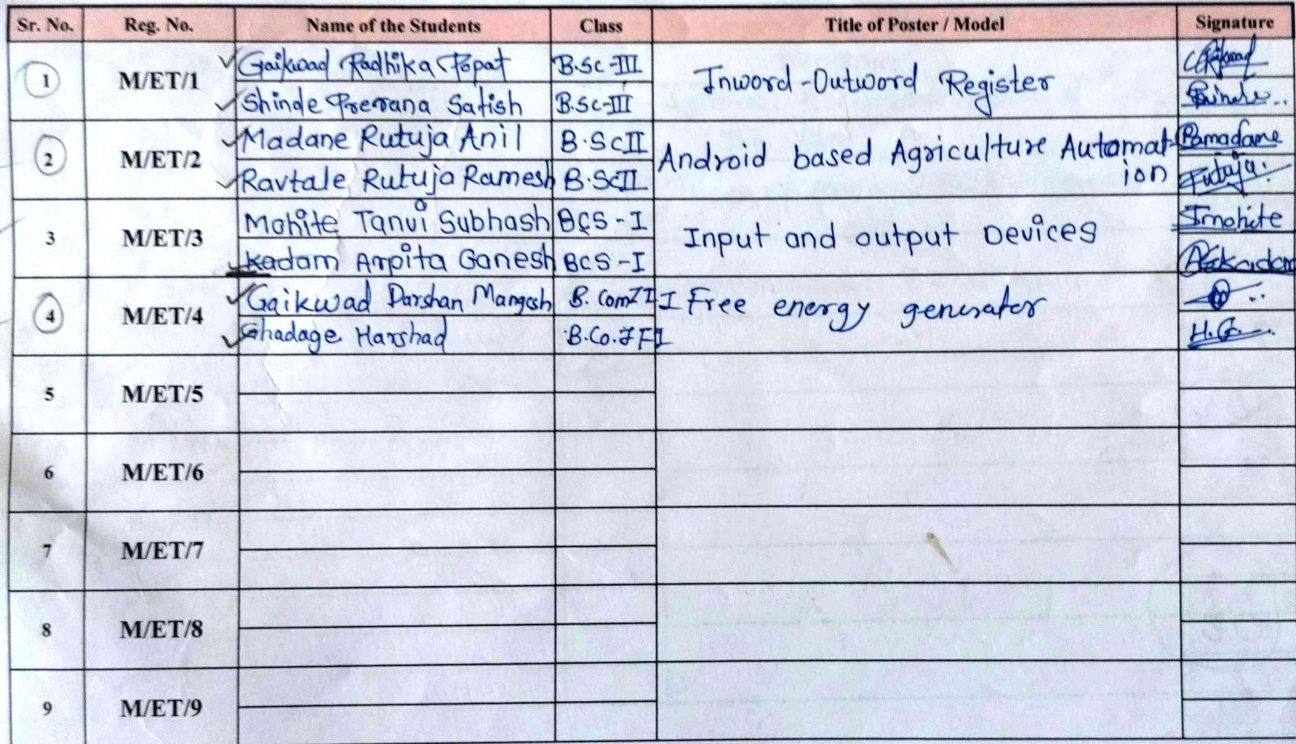 Sr. No. Reg. No. Name of the Students Class Title of Poster / Model Signature
1 M/ET/1 Gaikwad Radhika Popat B.Sc-III Inword-Outword Register
Shinde Prerana Satish B.Sc-III Shinde..
2 M/ET/2 Madane Rutuja Anil B.ScII Android based Agriculture Automat- Ramadane
Ravtale Rutuja Ramesh B.ScII ion Rutuja.
3 M/ET/3 Mohite Tanvi Subhash BCS-I Input and output Devices Tmohite
Kadam Arpita Ganesh BCS-I
4 M/ET/4 Gaikwad Darshan Mangesh B.Com III Free energy generator
Ghadage Harshad H.G
5 M/ET/5
6 M/ET/6
7 M/ET/7
8 M/ET/8
9 M/ET/9